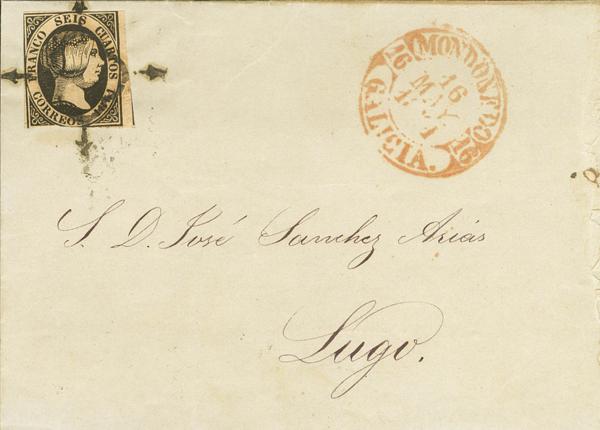 FRANCO SEIS CUARTOS
CORREOS 1851
MONDOÑEDO
16
16
16
MAY
GALICIA.
S. D. José Sanchez Ariás
Lugo.